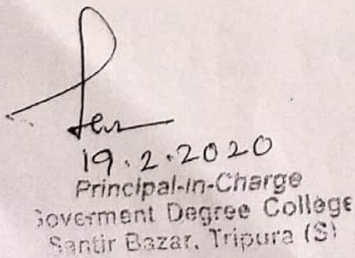 19.2.2020
Principal-In-Charge
Goverment Degree College
Santir Bazar, Tripura (S)